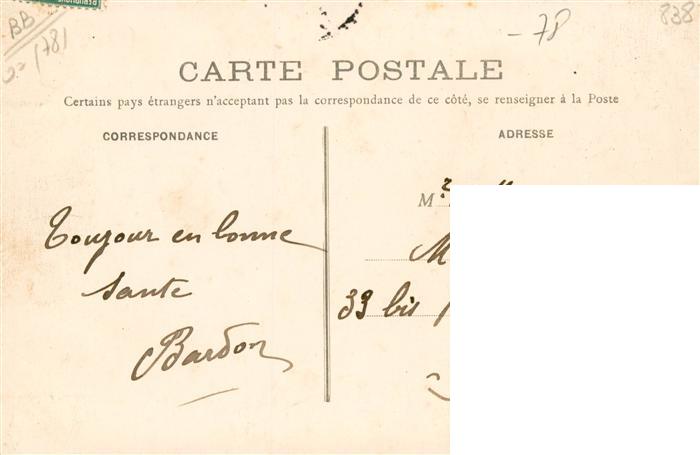 BB
78
838
CARTE POSTALE
Certains pays étrangers n'acceptant pas la correspondance de ce côté, se renseigner à la Poste
CORRESPONDANCE
ADRESSE
Toujour en bonne
sante
Bardon
M.
M
33 bis